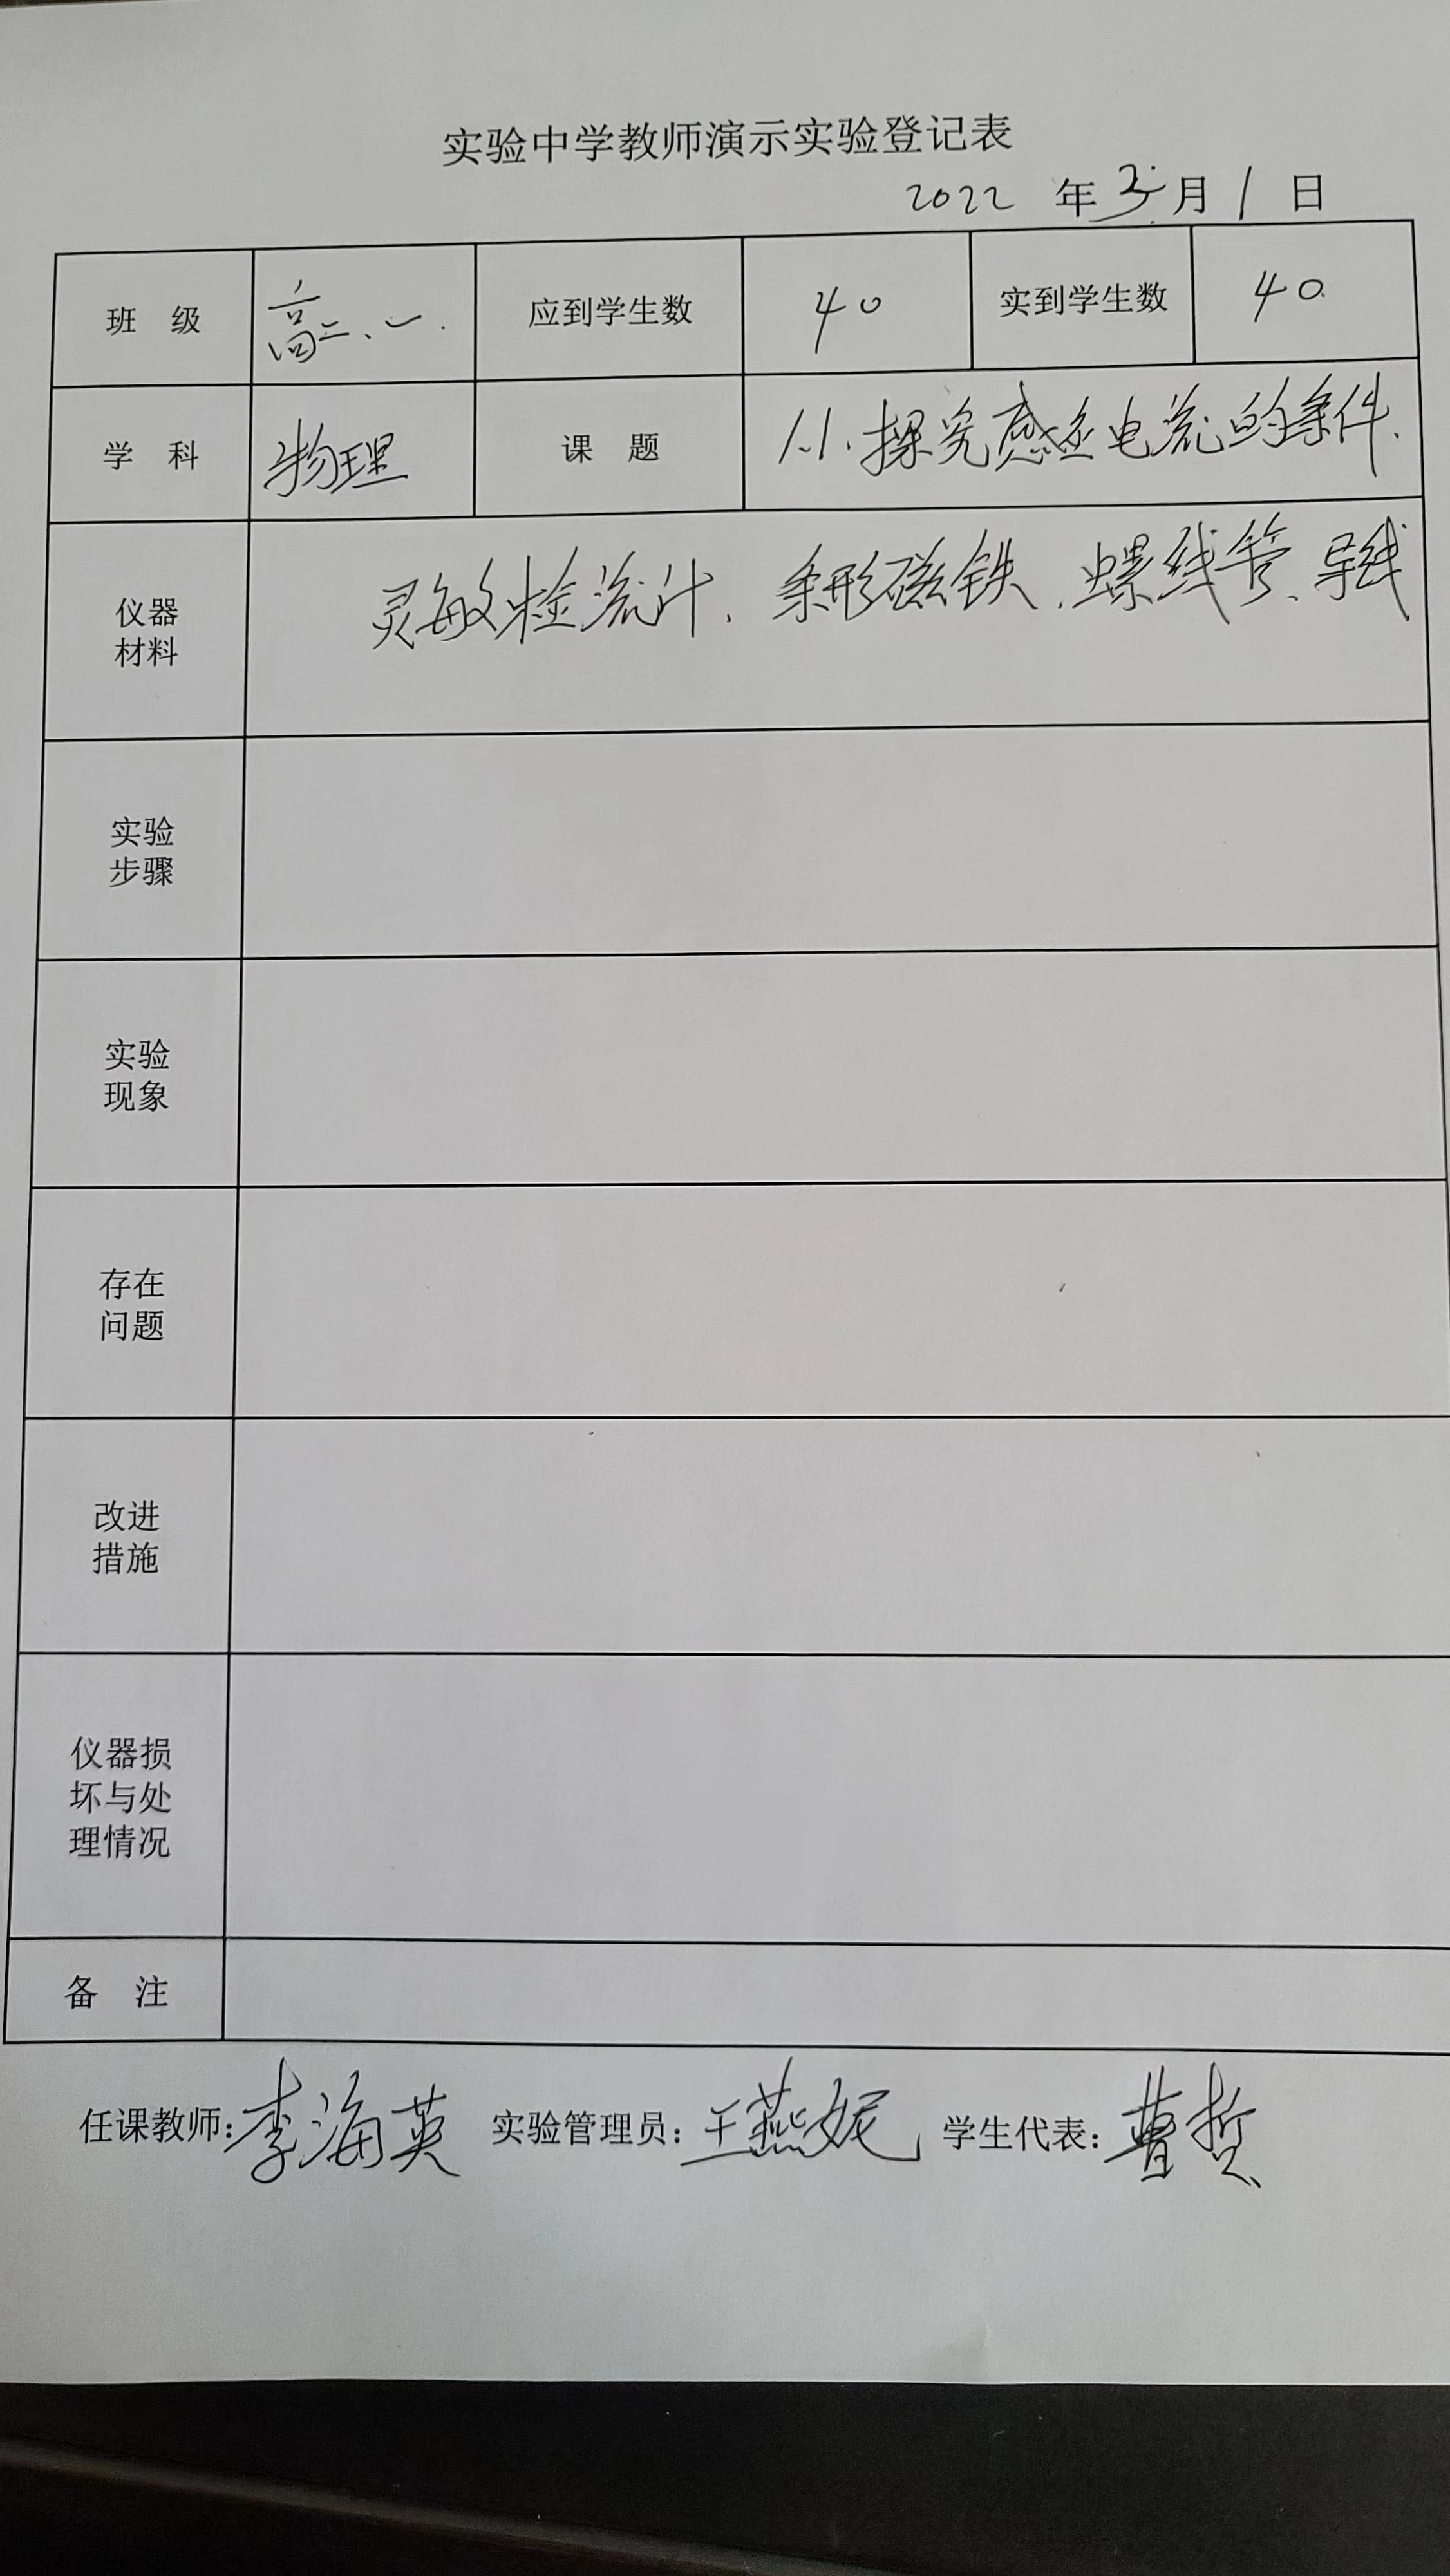 实验中学教师演示实验登记表
2022 年 3 月 1 日
班 级 高二、一. 应到学生数 40 实到学生数 40
学 科 物理 课 题 1.1.探究感应电流的条件.
仪器 灵敏检流计、条形磁铁、螺线管、导线
材料
实验
步骤
实验
现象
存在
问题
改进
措施
仪器损
坏与处
理情况
备 注
任课教师:李海英 实验管理员:王燕妮 学生代表:曹哲